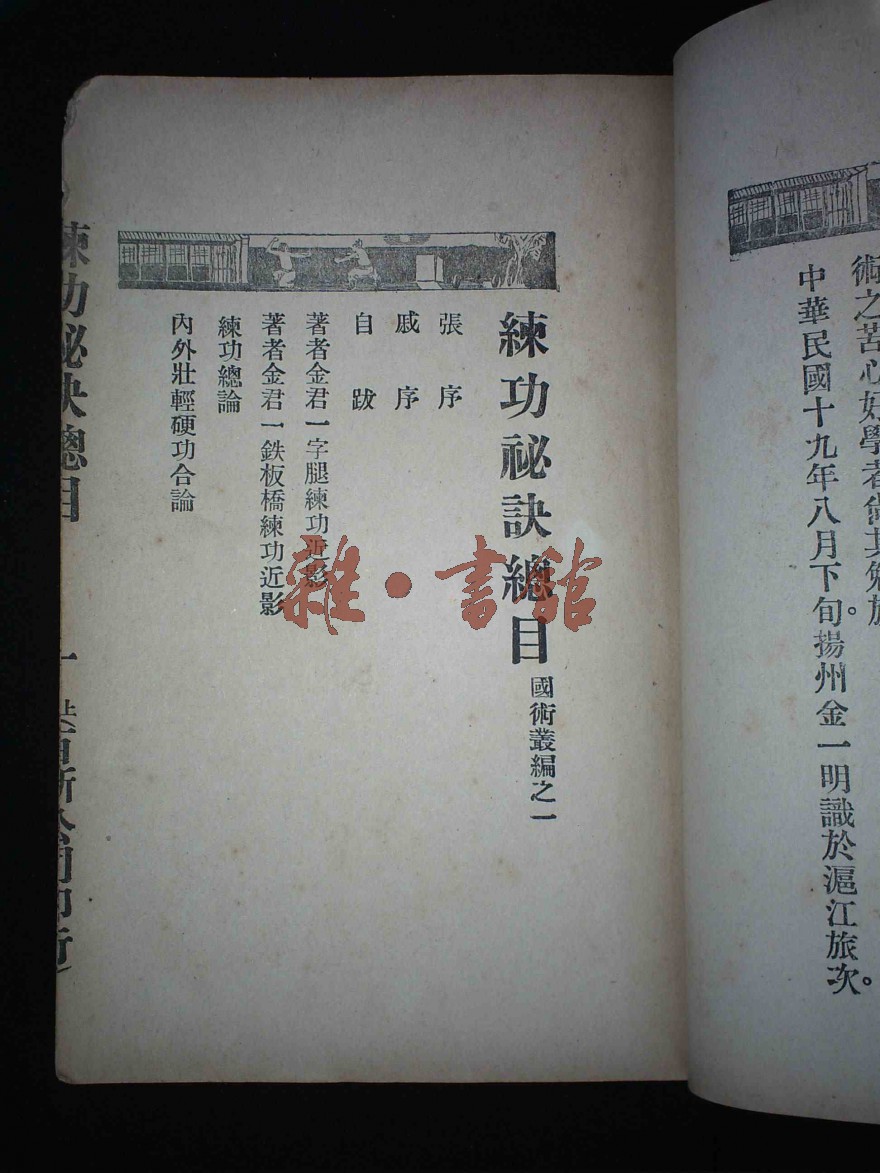 術之苦心好學者
中華民國十九年八月下旬揚州金一明識於滬江旅次。
練功祕訣總目
國術叢編之一
張序
戚序
自跋
著者金君一字腿練功近影
著者金君一鉄板橋練功近影
練功總論
內外壯輕硬功合論
練功祕訣總目
一
雜·書館